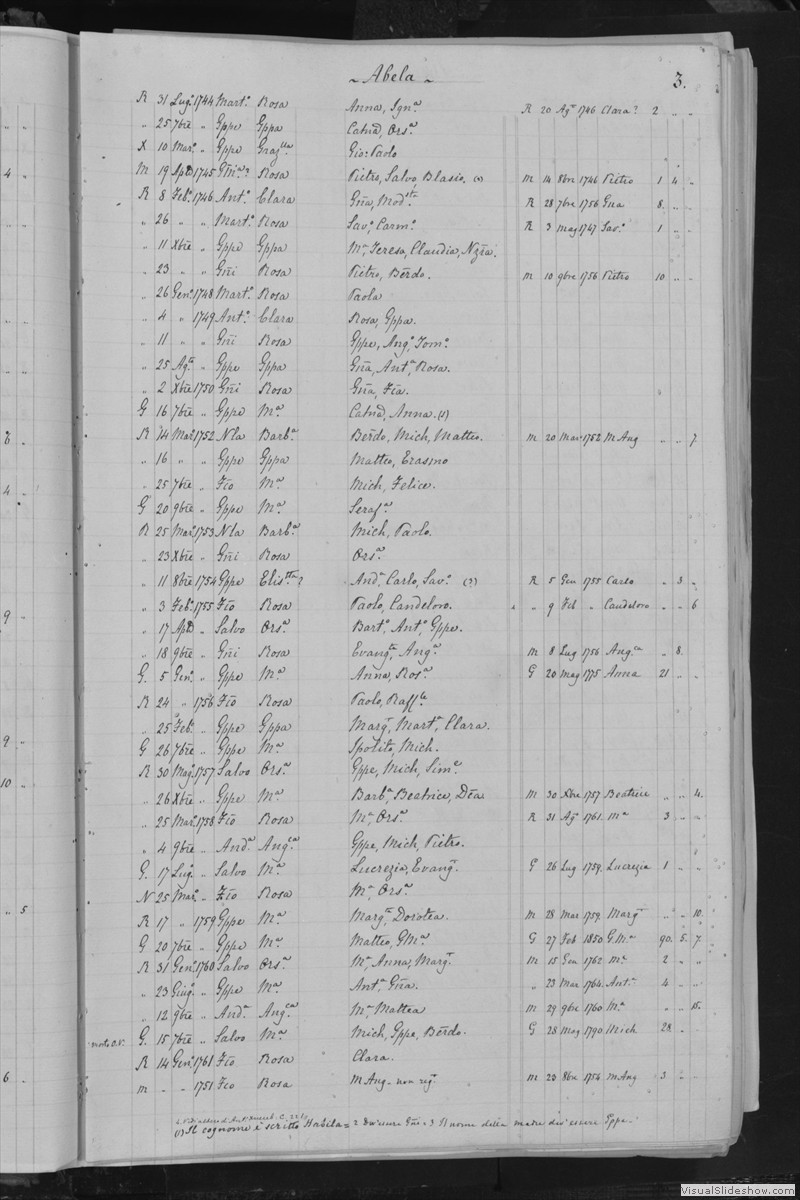 ~ Abela ~
3.
R 31 Lugº 1744 Martº Rosa Anna, Ignª R 20 Agº 1746 Clara? 2 " "
" 25 7bre " Gppe Gppa Catnã, Orsª
X 10 Marº " Gppe Grazlla Gio: Paolo
M 19 1745 Rosa Pietro, Salvo, Blasio, M 14 8bre 1746 Pietro 1 4 "
R 8 Febº 1746 Antº Clara Gña, Modsta R 28 7bre 1756 Gña 8. " "
" 26 " " Martº Rosa Savº, Carmº R 3 Mag 1747 Savº 1 " "
" 11 Xbre " Gppe Gppa Mª Teresa, Claudia, Nzia.
" 23 " " Gñi Rosa Pietro, Berdo. M 10 9bre 1756 Pietro 10 " "
" 26 Genº 1748 Martº Rosa Paola
" 4 " 1749 Antº Clara Rosa, Gppa.
" 11 " " Gñi Rosa Gppe, Angº, Tomº
" 25 Agto " Gppe Gppa Gña, Antª, Rosa.
" 2 Xbre 1750 Gñi Rosa Gña, Fca.
G 16 7bre " Gppe Mª Catnã, Anna. (1)
R 14 Marº 1752 Nla Barbª Berdo, Mich, Matteo. M 20 Mar 1752 M Ang " " 7
" 16 " " Gppe Gppa Matteo, Erasmo
" 25 7bre " Fco Mª Mich, Felice.
G 20 9bre " Gppe Mª Serafª
R 25 Marº 1753 Nla Barbª Mich, Paolo.
" 23 Xbre " Gñi Rosa Orsª
" 11 8bre 1754 Gppe Elistta? Andª, Carlo, Savº (2) R 5 Gen 1755 Carlo " 3 "
" 3 Febº 1755 Fco Rosa Paolo, Candeloro. " 9 Feb " Candeloro " " 6
" 17 " Salvo Orsª Bartº, Antº, Gppe.
" 18 9bre " Gñi Rosa Evangta, Angª M 8 Lug 1756 Angca " 8.
G. 5 Genº " Gppe Mª Anna, Rosª G 20 Mag 1775 Anna 21 " "
R 24 " 1756 Fco Rosa Paolo, Raffle
" 25 Febº " Gppe Gppa Margª, Martª, Clara.
G 26 7bre " Gppe Mª Ipolito, Mich.
R 30 Magº 1757 Salvo Orsª Gppe, Mich, Simº
" 26 Xbre " Gppe Mª Barbª, Beatrice, Dca M 30 Xbre 1757 Beatrice " " 4.
" 25 Marº 1758 Fco Rosa Mª Orsª R 31 Ag 1761 Mª 3 " "
" 4 9bre " Andª Angca Gppe, Mich, Pietro.
G. 17 Lugº " Salvo Mª Lucrezia, Evangª G 26 Lug 1759 Lucrezia 1 " "
N 25 Marº " Fco Rosa Mª, Orsª
R 17 " 1759 Gppe Mª Margª, Dorotea. M 28 Mar 1759 Margª " " 10.
G 20 7bre " Gppe Mª Matteo, GMª G 27 Feb 1850 G.Mª 90. 5. 7
R 31 Genº 1760 Salvo Orsª Mª Anna, Margª M 15 Gen 1762 Mª 2 " "
" 23 Giugº " Gppe Mª Antª, Gña. " 23 Mar 1764 Antª 4 " "
" 12 9bre " Andª Angca Mª Mattea M 29 9bre 1760 Mª " " 15.
G. 15 7bre " Salvo Mª Mich, Gppe, Berdo. G 28 Mag 1790 Mich 28 " "
R 14 Genº 1761 Fco Rosa Clara.
M " " 1751 Fco Rosa M Ang non regº M 20 8bre 1754 M Ang 3 " "
(1) Il cognome è scritto = 2 essere Gñi = 3 Il nome della madre dev'essere Gppa.
VisualSlideshow.com